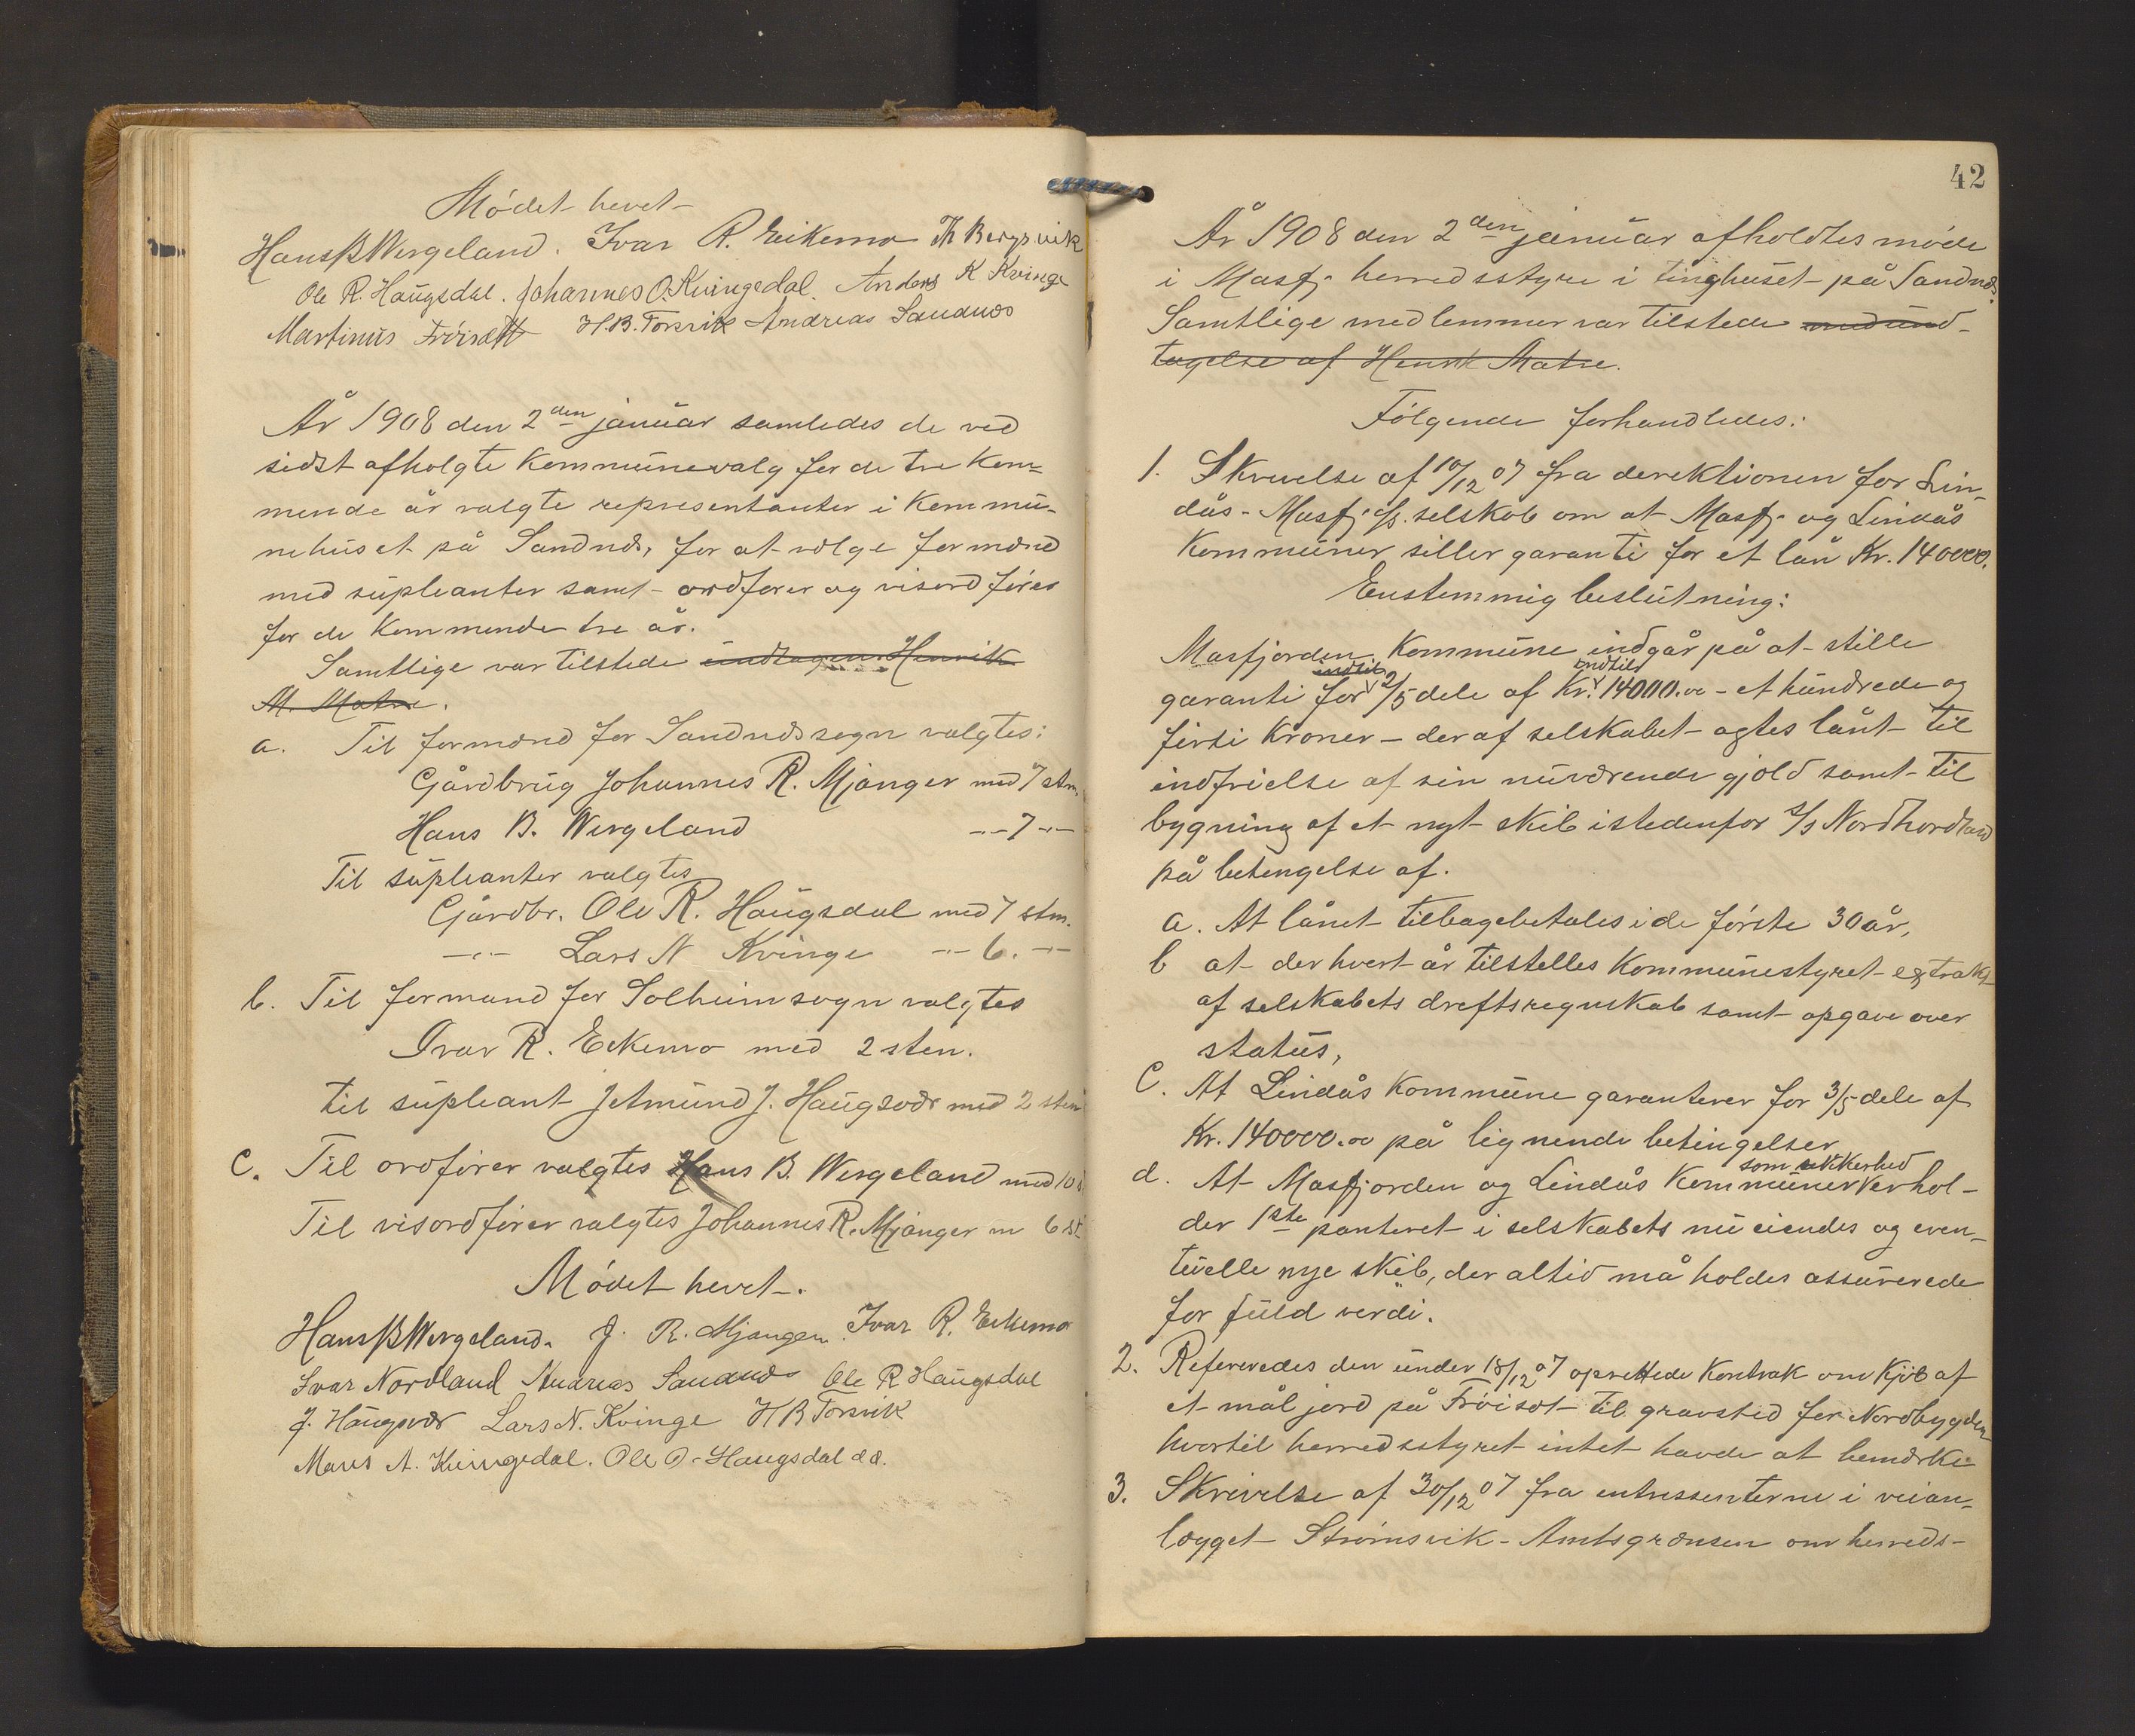 Mødet hevet
Hans B Wergeland. Ivar R. Eikemo Th Bergsvik
Ole R. Haugsdal. Johannes O. Kvingedal. Anders K Kvinge
Martinus Frøisætt H.B. Torsvik Andreas Sandnæs
År 1908 den 2den januar samledes de ved
sidst afholgte kommunevalg for de tre kom-
mende år valgte representanter i kommu-
nehuset på Sandnæs, for at vælge formænd
med supleanter samt ordfører og visordfører
for de kommende tre år.
Samtlige var tilstede undtagen Henrik
M. Matre.
a. Til formænd for Sandnæs sogn valgtes:
Gårdbrug Johannes R. Mjanger med 7 stm.
Hans B. Wergeland -"- 7 -"-
Til supleanter valgtes
Gårdbr. Ole R. Haugsdal med 7 stm.
-"- Lars N Kvinge -"- 6. -"-
b. Til formand for Solheim sogn valgtes
Ivar R. Eekemo med 2 stem.
til supleant Jetmund J. Haugsvær med 2 stem
C. Til ordfører valgtes Hans B. Wergeland med 10 s
Til visordfører valgtes Johannes R. Mjanger m 6 st
Mødet hevet.
Hans B Wergeland. J. R. Mjanger. Ivar R. Eekemo
Ivar Nordland Andreas Sandnæs Ole R Haugsdal
J. Haugsvær Lars N. Kvinge H B Torsvik
Mons A. Kvingedal. Ole O. Haugsdal d.æ.
42
År 1908 den 2den januar afholdtes møde
i Masfj. herredsstyre i tinghuset på Sandnæs.
Samtlige medlemmer var tilstede med und-
tagelse af Henrik Matre.
Følgende forhandledes:
1. Skrivelse af 10/12 07 fra derektionen for Lin-
dås - Masfj. d/s. selskab om at Masfj. og Lindås
kommuner siller garanti for et lån Kr. 140000.
Enstemmig beslutning:
Masfjorden kommune indgår på at stille
indtil indtil
garanti for 2/5 dele af Kr. 14000.00 - et hundrede og
førti kroner - der af selskabet agtes lånt til
indfrielse af sin nuværende gjæld samt til
bygning af et nyt skib istedenfor d/s Nordhordland
på betengelse af.
a. At lånet tilbagebetales i de første 30 år,
b at der hvert år tilstelles kommunestyret egstrakt
af selskabets dreftsregnskab samt opgave over
status,
C. At Lindås kommune garanterer for 3/5 dele af
Kr. 140000.00 på lignende betingelser
som sekkerhed
d. At Masfjorden og Lindås kommuner erhol-
der 1ste panteret i selskabets nu eiendes og even-
tuelle nye skib, der altid må holdes assurerede
for fuld verdi.
2. Refereredes den under 18/12 07 oprettede kontrak om kjøb af
et mål jord på Frøiset til gravsted for Nordbygden
hvortil herredsstyret intet havde at bemærke
3. Skrivelse af 30/12 07 fra entressenterne i veian-
lægget Strømsvik - Amtsgrænsen om herreds-